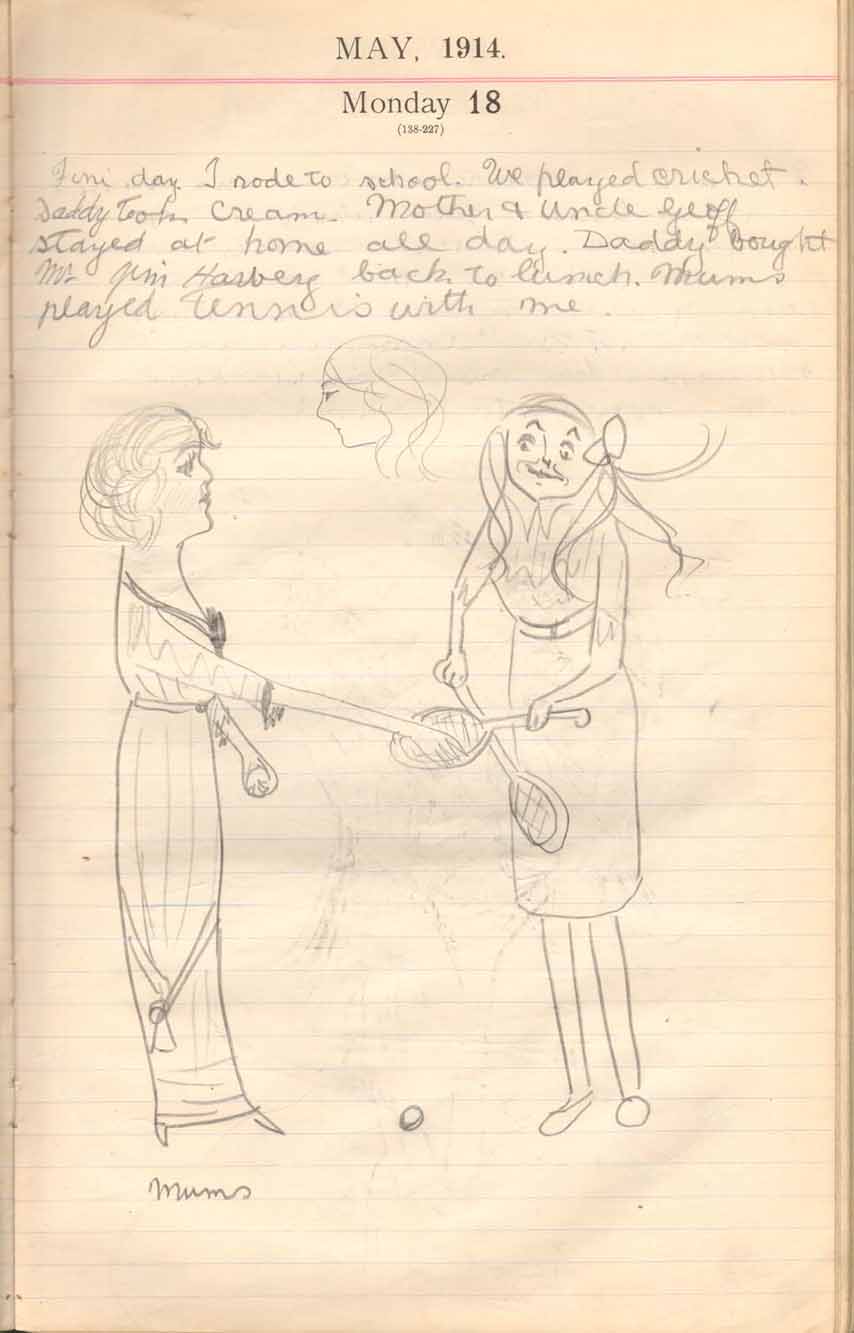 MAY, 1914.
Monday 18
(138-227)
Fini day. I rode to school. We played cricket.
Daddy Took Cream. Mother & Uncle Geoff
stayed at home all day. Daddy bought
Mr Jim back to lunch. Mums
played tennis with me.
Mums